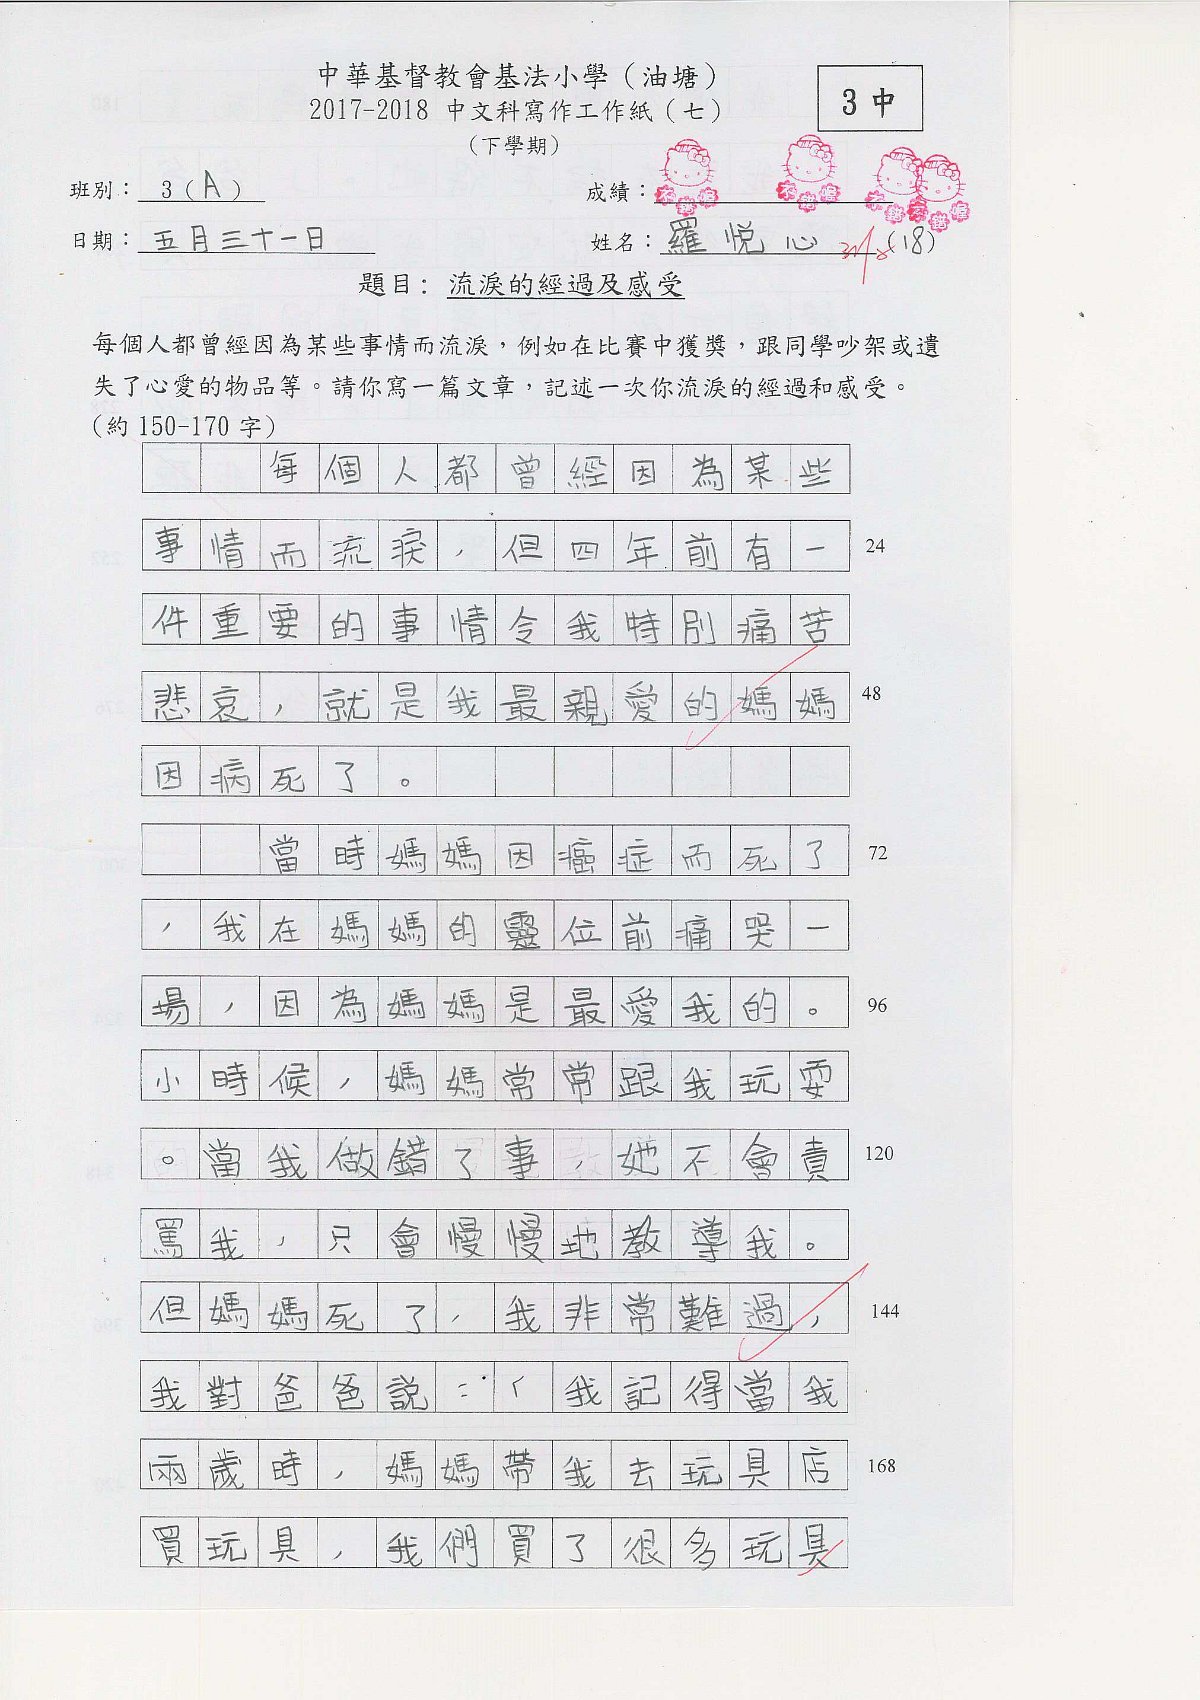 中華基督教會基法小學（油塘）
2017-2018 中文科寫作工作紙（七）
3中
（下學期）
班別： 3（A）
成績：
不錯喔 不錯喔 不錯喔 不錯喔
日期： 五月三十一日
姓名： 羅悅心 (18)
題目： 流淚的經過及感受
每個人都曾經因為某些事情而流淚，例如在比賽中獲獎，跟同學吵架或遺
失了心愛的物品等。請你寫一篇文章，記述一次你流淚的經過和感受。
（約 150-170 字）
每個人都曾經因為某些
事情而流淚，但四年前有一 24
件重要的事情令我特別痛苦
悲哀，就是我最親愛的媽媽 48
因病死了。
當時媽媽因癌症而死了 72
，我在媽媽的靈位前痛哭一
場，因為媽媽是最愛我的。 96
小時候，媽媽常常跟我玩耍
。當我做錯了事，她不會責 120
罵我，只會慢慢地教導我。
但媽媽死了，我非常難過， 144
我對爸爸說：「我記得當我
兩歲時，媽媽帶我去玩具店 168
買玩具，我們買了很多玩具